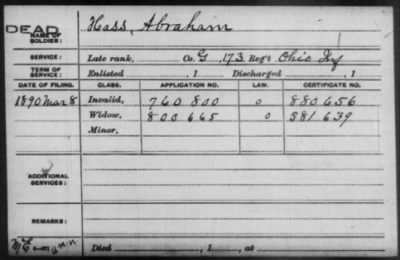 DEAD
NAME OF SOLDIER: Hass, Abraham
SERVICE: Late rank, Co. G, 173 Reg't Ohio Inf
TERM OF SERVICE: Enlisted , 1 Discharged , 1
DATE OF FILING. CLASS. APPLICATION NO. LAW. CERTIFICATE NO.
1890 Mar 8 Invalid, 760 800 o 880 656
Widow, 800 665 o 581 639
Minor,
ADDITIONAL SERVICES:
REMARKS:
Died , 1 , at